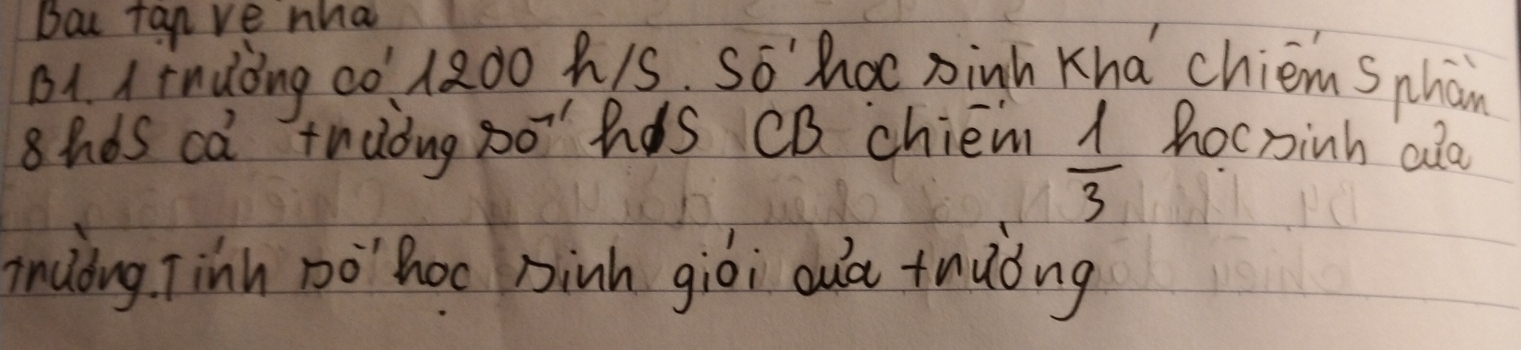 Bài tập về nhà
B1. 1 trường có 1200 h/s. Số học sinh khá chiếm 5 phần
8 hds cả trường số hds CB chiếm 1/3 học sinh của
trường. Tính số học sinh giỏi của trường